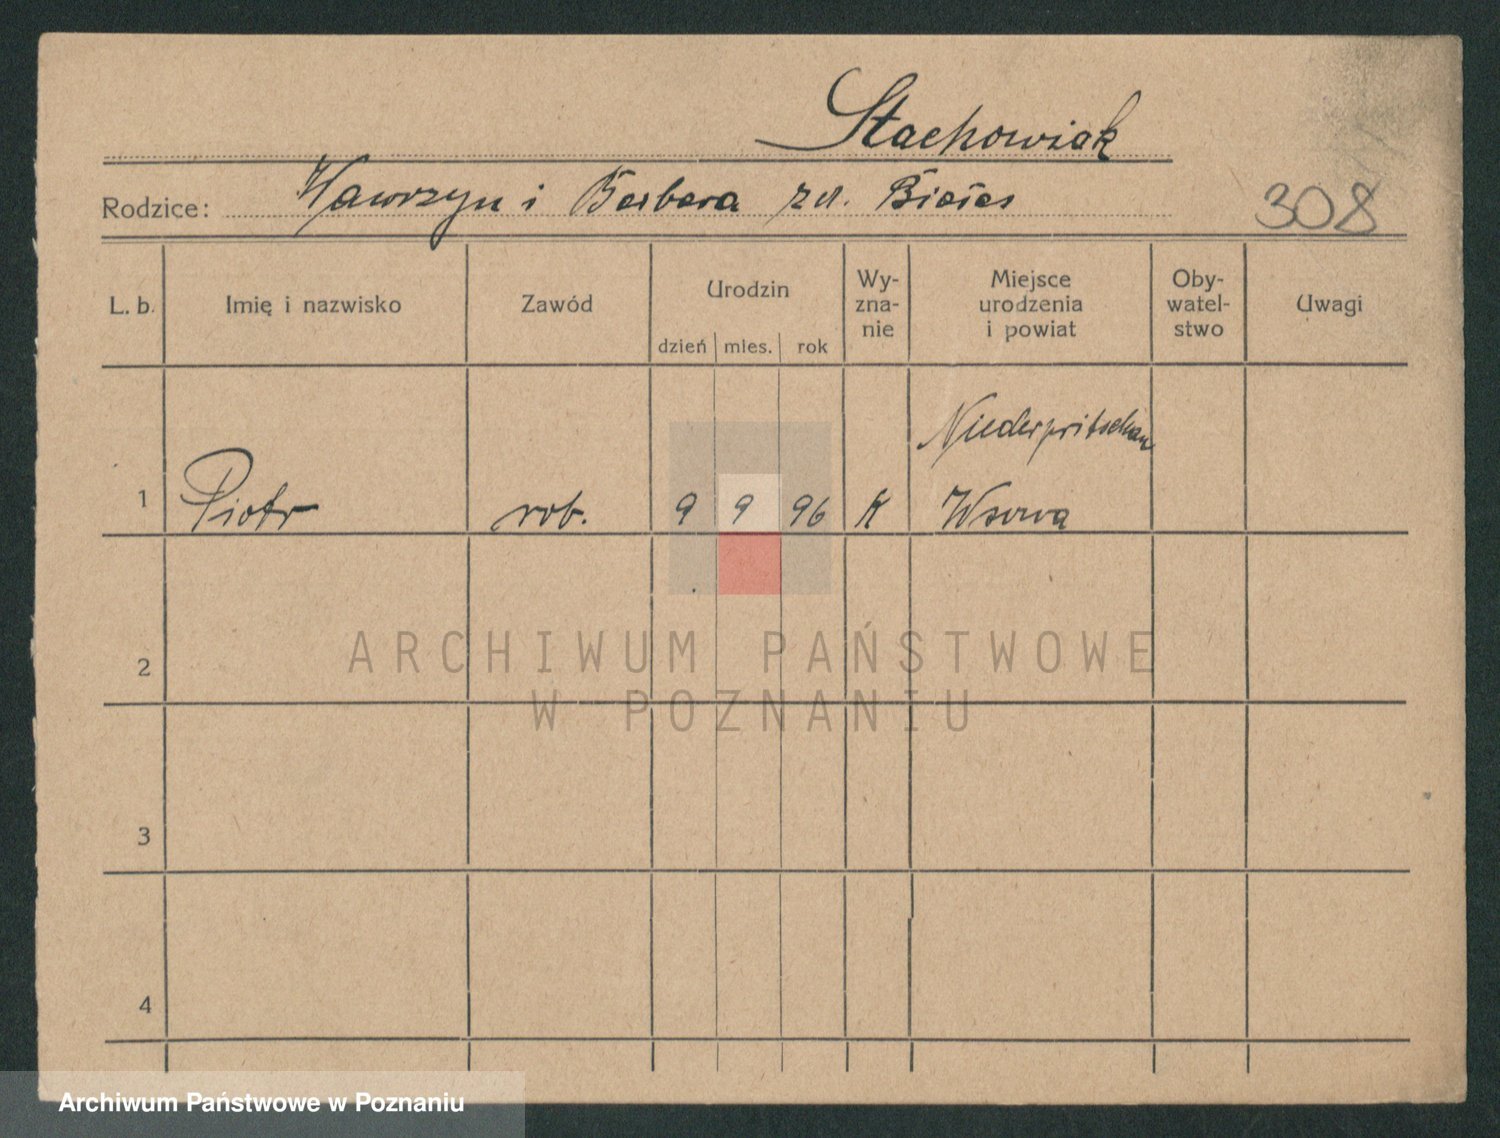 Stachowiak
Rodzice: Wawrzyn i Barbara zd.
308
L. b. Imię i nazwisko Zawód Urodzin Wy- zna- nie Miejsce urodzenia i powiat Oby- watel- stwo Uwagi
dzień mies. rok
Niederpritschen
1 Piotr rob. 9 9 96 K
2
ARCHIWUM PAŃSTWOWE
W POZNANIU
3
4
Archiwum Państwowe w Poznaniu